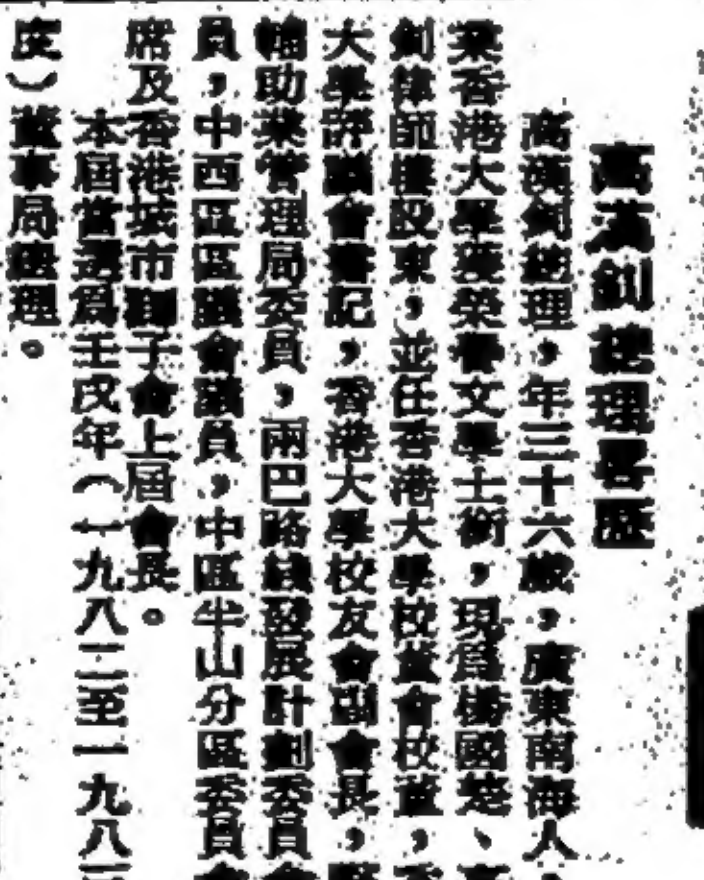 高漢釗總理畧歷
高漢釗總理，年三十六歲，廣東南海人，
業香港大學獲榮譽文學士銜，現爲楊國楚、高
釗律師樓股東，並任香港大學校董會校董，香
大學評議會書記，香港大學校友會副會長，
輔助業管理局委員，兩巴路綫發展計劃委員會
員，中西區區議會議員，中區半山分區委員會
席及香港城市獅子會上屆會長。
本屆當選爲壬戌年（一九八二至一九八三
度）董事局總理。